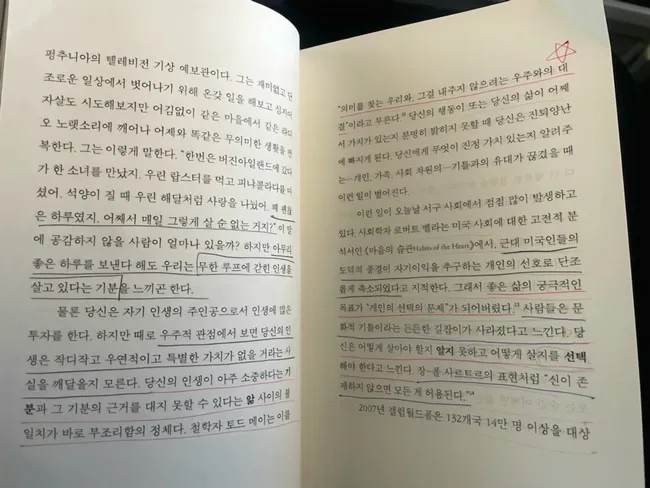 펑추니아의 텔레비전 기상 예보관이다. 그는 재미없고 단
조로운 일상에서 벗어나기 위해 온갖 일을 해보고 심지어
자살도 시도해보지만 어김없이 같은 마을에서 같은 라디
오 노랫소리에 깨어나 어제와 똑같은 무의미한 생활을 반
복한다. 그는 이렇게 말한다. "한번은 버진아일랜드에 있다
가 한 소녀를 만났지. 우린 랍스터를 먹고 피냐콜라다를 마
셨어. 석양이 질 때 우린 해달처럼 사랑을 나눴어. 꽤 괜찮
은 하루였지. 어째서 매일 그렇게 살 순 없는 거지?" 이 말
에 공감하지 않을 사람이 얼마나 있을까? 하지만 아무리
좋은 하루를 보낸다 해도 우리는 무한 루프에 갇힌 인생을
살고 있다는 기분을 느끼곤 한다.
물론 당신은 자기 인생의 주인공으로서 인생에 많은
투자를 한다. 하지만 때로 우주적 관점에서 보면 당신의 인
생은 작디작고 우연적이고 특별한 가치가 없을 거라는 사
실을 깨달을지 모른다. 당신의 인생이 아주 소중하다는 기
분과 그 기분의 근거를 대지 못할 수 있다는 앎 사이의 불
일치가 바로 부조리함의 정체다. 철학자 토드 메이는 이를
"의미를 찾는 우리와, 그걸 내주지 않으려는 우주와의 대
결"이라고 부른다. 당신의 행동이 또는 당신의 삶이 어째
서 가치가 있는지 분명히 밝히지 못할 때 당신은 진퇴양난
에 빠지게 된다. 당신에게 무엇이 진정 가치 있는지 알려주
는―개인, 가족, 사회 차원의―기틀과의 유대가 끊겼을 때
이런 일이 벌어진다.
이런 일이 오늘날 서구 사회에서 점점 많이 발생하고
있다. 사회학자 로버트 벨라는 미국 사회에 대한 고전적 분
석서인 《마음의 습관Habits of the Heart》에서, 근대 미국인들의
도덕적 풍경이 자기이익을 추구하는 개인의 선호로 단조
롭게 축소되었다고 지적한다. 그래서 좋은 삶의 궁극적인
목표가 "개인의 선택의 문제"가 되어버렸다. 사람들은 문
화적 기틀이라는 든든한 길잡이가 사라졌다고 느낀다. 당
신은 어떻게 살아야 할지 알지 못하고 어떻게 살지를 선택
해야 한다고 느낀다. 장-폴 사르트르의 표현처럼 "신이 존
재하지 않으면 모든 게 허용된다."
2007년 갤럽월드폴은 132개국 14만 명 이상을 대상